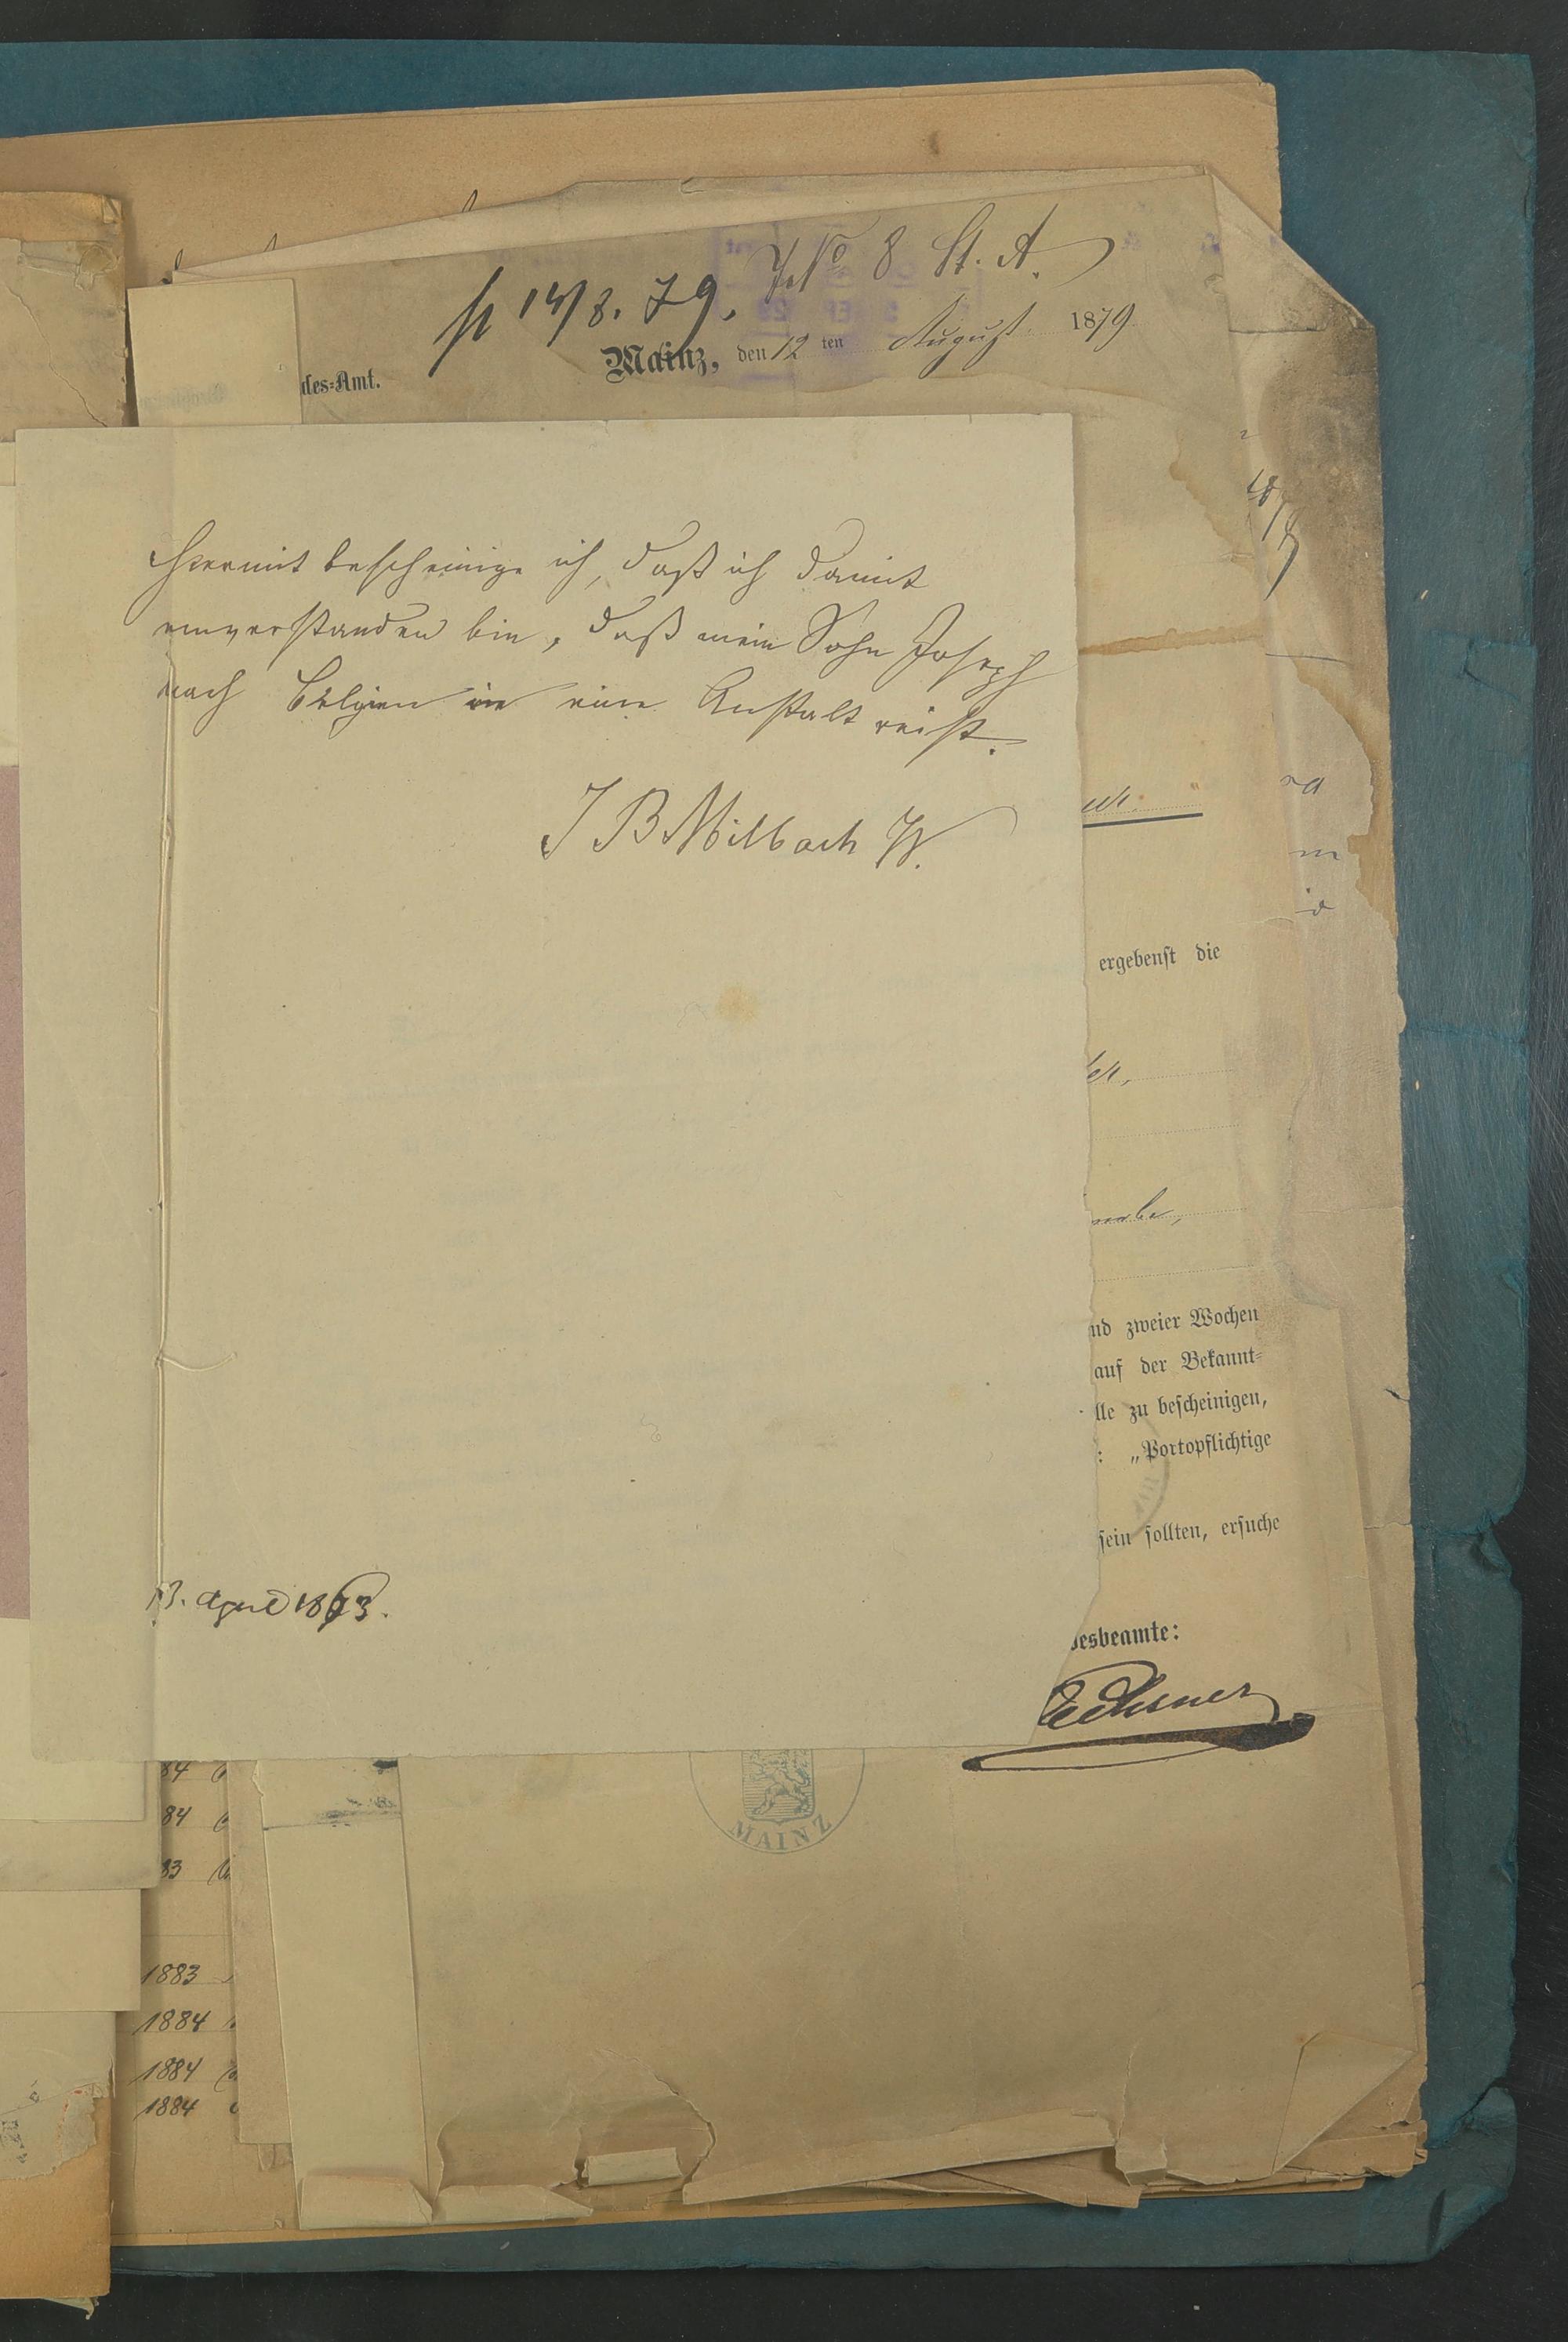 J. No 8 St. A.
14/8. 79.
Mainz, den 12 ten August 1879
des=Amt.
Hiermit bescheinige ich, daß ich damit
einverstanden bin, daß mein Sohn Joseph
nach Belgien in eine Anstalt reist.
J B Milbach W.
ergebenst die
nd zweier Wochen
auf der Bekannt=
lle zu bescheinigen,
: „Portopflichtige
sein sollten, ersuche
13. April 1883.
desbeamte:
MAINZ
84
84
83
1883
1884
1884
1884